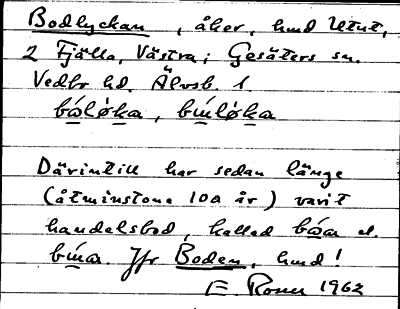 Bodlyckan, åker, hmd Utut,
2 Fjälla, Västra; Gesäters sn.
Vedbo hd. Älvsb. l.
bóløka, bu̇́løka
Därintill har sedan länge
(åtminstone 100 år) varit
handelsbod, kallad bóa el.
bu̇́a. Jfr Boden, hmd!
E. Rosen 1962